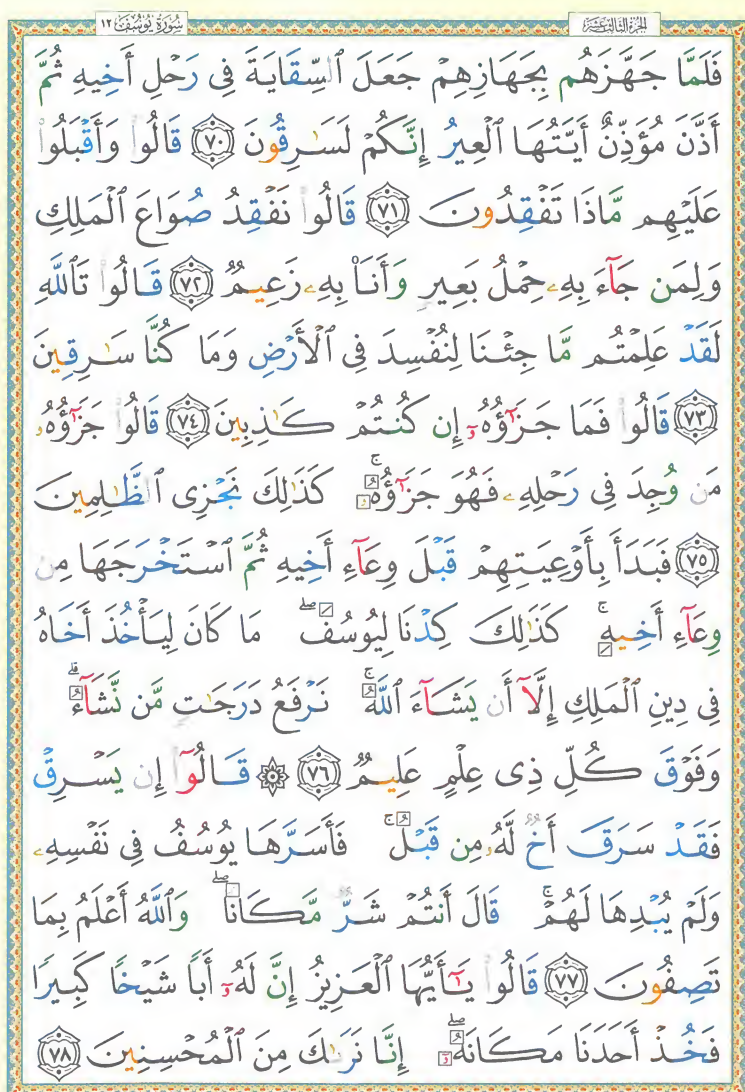 سُورَةُ يُوسُفَ ١٢
الجزء الثالث عشر
فَلَمَّا جَهَّزَهُم بِجَهَازِهِمْ جَعَلَ ٱلسِّقَايَةَ فِى رَحْلِ أَخِيهِ ثُمَّ
أَذَّنَ مُؤَذِّنٌ أَيَّتُهَا ٱلْعِيرُ إِنَّكُمْ لَسَـٰرِقُونَ ٧٠ قَالُوا۟ وَأَقْبَلُوا۟
عَلَيْهِم مَّاذَا تَفْقِدُونَ ٧١ قَالُوا۟ نَفْقِدُ صُوَاعَ ٱلْمَلِكِ
وَلِمَن جَآءَ بِهِۦ حِمْلُ بَعِيرٍ وَأَنَا۠ بِهِۦ زَعِيمٌ ٧٢ قَالُوا۟ تَٱللَّهِ
لَقَدْ عَلِمْتُم مَّا جِئْنَا لِنُفْسِدَ فِى ٱلْأَرْضِ وَمَا كُنَّا سَـٰرِقِينَ
٧٣ قَالُوا۟ فَمَا جَزَٰٓؤُهُۥٓ إِن كُنتُمْ كَـٰذِبِينَ ٧٤ قَالُوا۟ جَزَٰٓؤُهُۥ
مَن وُجِدَ فِى رَحْلِهِۦ فَهُوَ جَزَٰٓؤُهُۥ ۚ كَذَٰلِكَ نَجْزِى ٱلظَّـٰلِمِينَ
٧٥ فَبَدَأَ بِأَوْعِيَتِهِمْ قَبْلَ وِعَآءِ أَخِيهِ ثُمَّ ٱسْتَخْرَجَهَا مِن
وِعَآءِ أَخِيهِ ۚ كَذَٰلِكَ كِدْنَا لِيُوسُفَ ۖ مَا كَانَ لِيَأْخُذَ أَخَاهُ
فِى دِينِ ٱلْمَلِكِ إِلَّآ أَن يَشَآءَ ٱللَّهُ ۚ نَرْفَعُ دَرَجَـٰتٍ مَّن نَّشَآءُ ۗ
وَفَوْقَ كُلِّ ذِى عِلْمٍ عَلِيمٌ ٧٦ ۞ قَالُوٓا۟ إِن يَسْرِقْ
فَقَدْ سَرَقَ أَخٌ لَّهُۥ مِن قَبْلُ ۚ فَأَسَرَّهَا يُوسُفُ فِى نَفْسِهِۦ
وَلَمْ يُبْدِهَا لَهُمْ ۚ قَالَ أَنتُمْ شَرٌّ مَّكَانًا ۖ وَٱللَّهُ أَعْلَمُ بِمَا
تَصِفُونَ ٧٧ قَالُوا۟ يَـٰٓأَيُّهَا ٱلْعَزِيزُ إِنَّ لَهُۥٓ أَبًا شَيْخًا كَبِيرًا
فَخُذْ أَحَدَنَا مَكَانَهُۥٓ ۖ إِنَّا نَرَىٰكَ مِنَ ٱلْمُحْسِنِينَ ٧٨